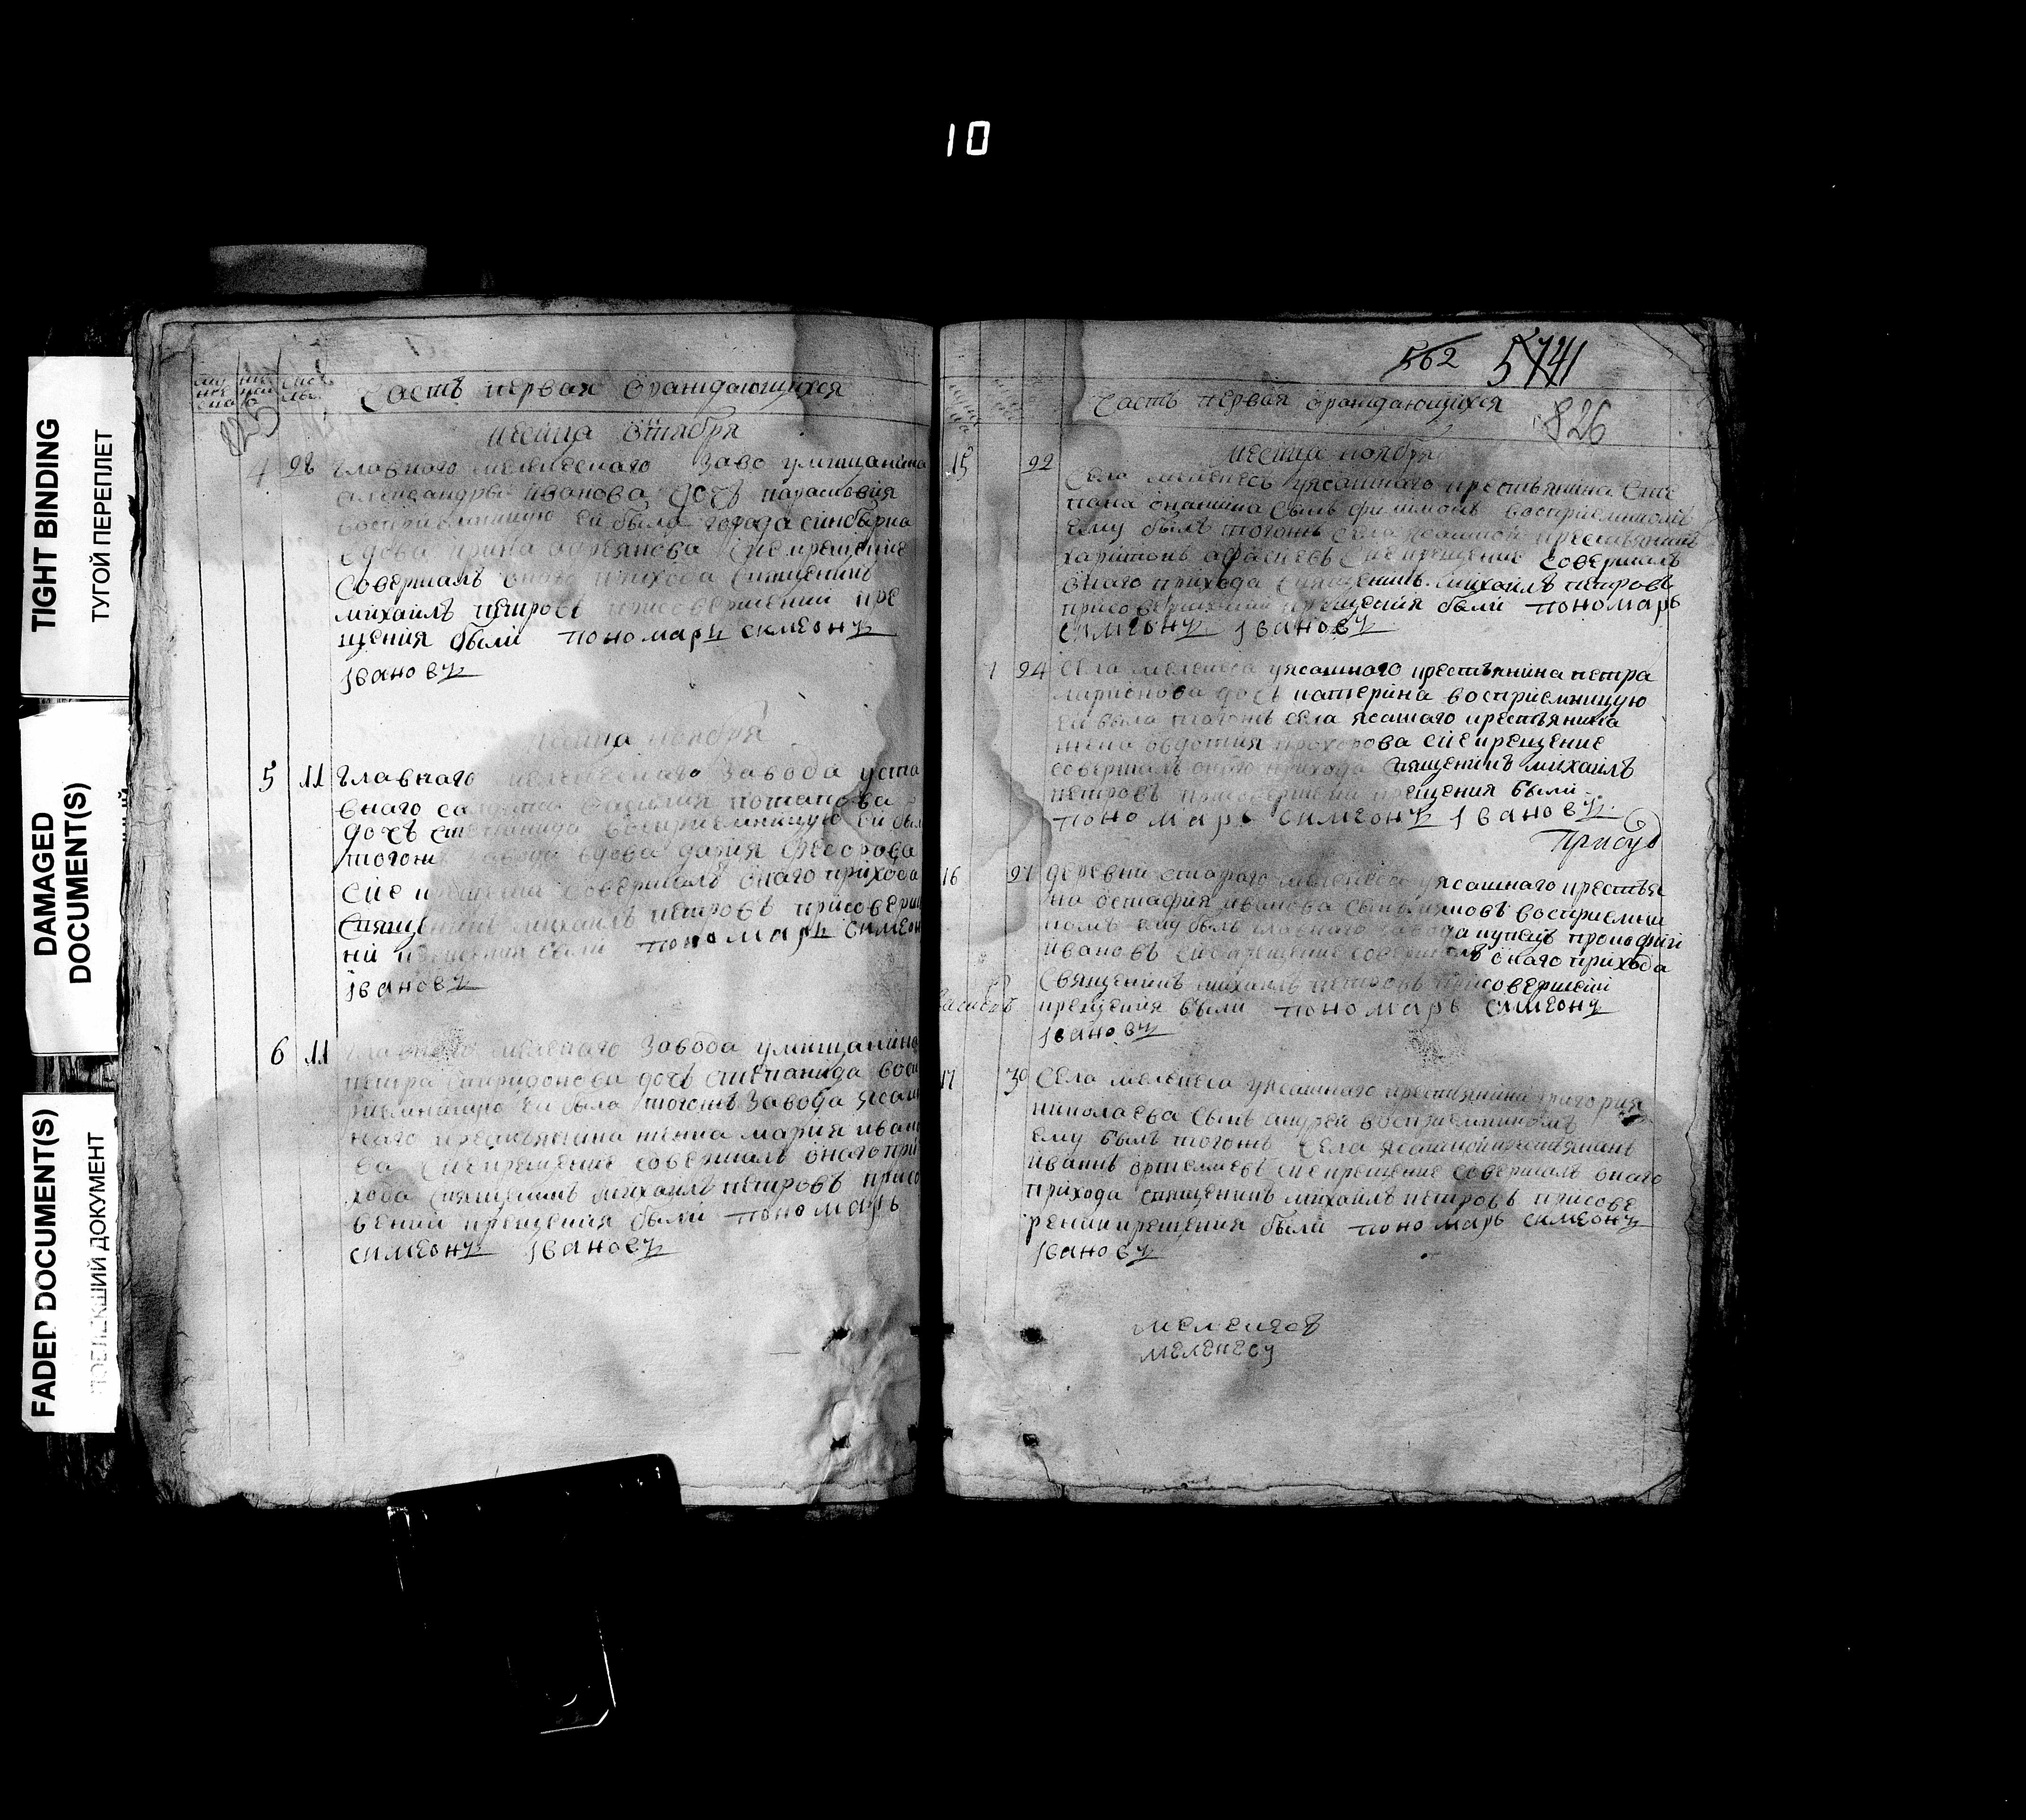 10
TIGHT BINDING
ТУГОЙ ПЕРЕПЛЕТ
DAMAGED
DOCUMENT(S)
FADED DOCUMENT(S)
ДОКУМЕНТ
825
Часть первая ораждающихся
месяца октября
4 28 главного мелекеского заво умещанина
александры иванова дочь парасковия
восприемницую ей была города синбирка
вдова ирина сие крещение
совершалъ онаго прихода священикъ
михаилъ петровъ присовершении кре
щения были пономарь симеонъ
Iвановъ
месяца ноября
5 11 главнаго мелекескаго завода уста
внаго василия потапова
дочь степанида восприемницую ей был
тогожъ завода вдова дария федорова
сие крещение совершалъ онаго прихода
священикъ михаилъ петровъ присоверше
ни крещения были пономарь симеон
Iвановъ
6 11 главного завода умещанина
петра спиридонова дочь степанида вос
приемницую ей была тогожъ завода ясаш
наго крестьянина женка мария ивано
ва сие крещение совершалъ онаго при
хода священикъ михаилъ петровъ присо
вении крещения были пономарь
симеонъ Iвановъ
562 5741
826
Часть первая ораждающихся
месяца ноября
15 22 села мелекесъ уясашнаго крестьянина сте
пана сынъ филимонъ восприемникомъ
ему былъ тогожъ села ясашной крестьянинъ
харитонъ сие крещение совершалъ
онаго прихода священикъ михаилъ петровъ
присовершении крещения были пономарь
симеонъ Iвановъ
7 24 села мелекеса уясашнаго крестьянина петра
ларионова дочь катерина восприемницую
ей была тогожъ села ясашаго крестьянина
жена овдотия прохорова сие крещение
совершалъ оною прихода священикъ михаилъ
петровъ присовершени крещения были
пономарь симеонъ Iвановъ
Присуд
16 27 деревни стараго мелекеса уясашнаго крестья
на остафия иванова сынъ яковъ восприемни
комъ ему былъ главнаго завода купецъ прокофий
ивановъ сие крещение совершалъ онаго прихода
священикъ михаилъ петровъ присовершени
крещения были пономарь симеонъ
Iвановъ
17 30 села мелекеса уясашнаго крестиянина григория
николаева сынъ андрей восприемникомъ
ему былъ тогожъ села ясашной крестиянинъ
иванъ ортемиевъ сие крещение совершалъ онаго
прихода священикъ михаилъ петровъ присове
рении крещения были пономарь симеонъ
Iвановъ
мелекесу